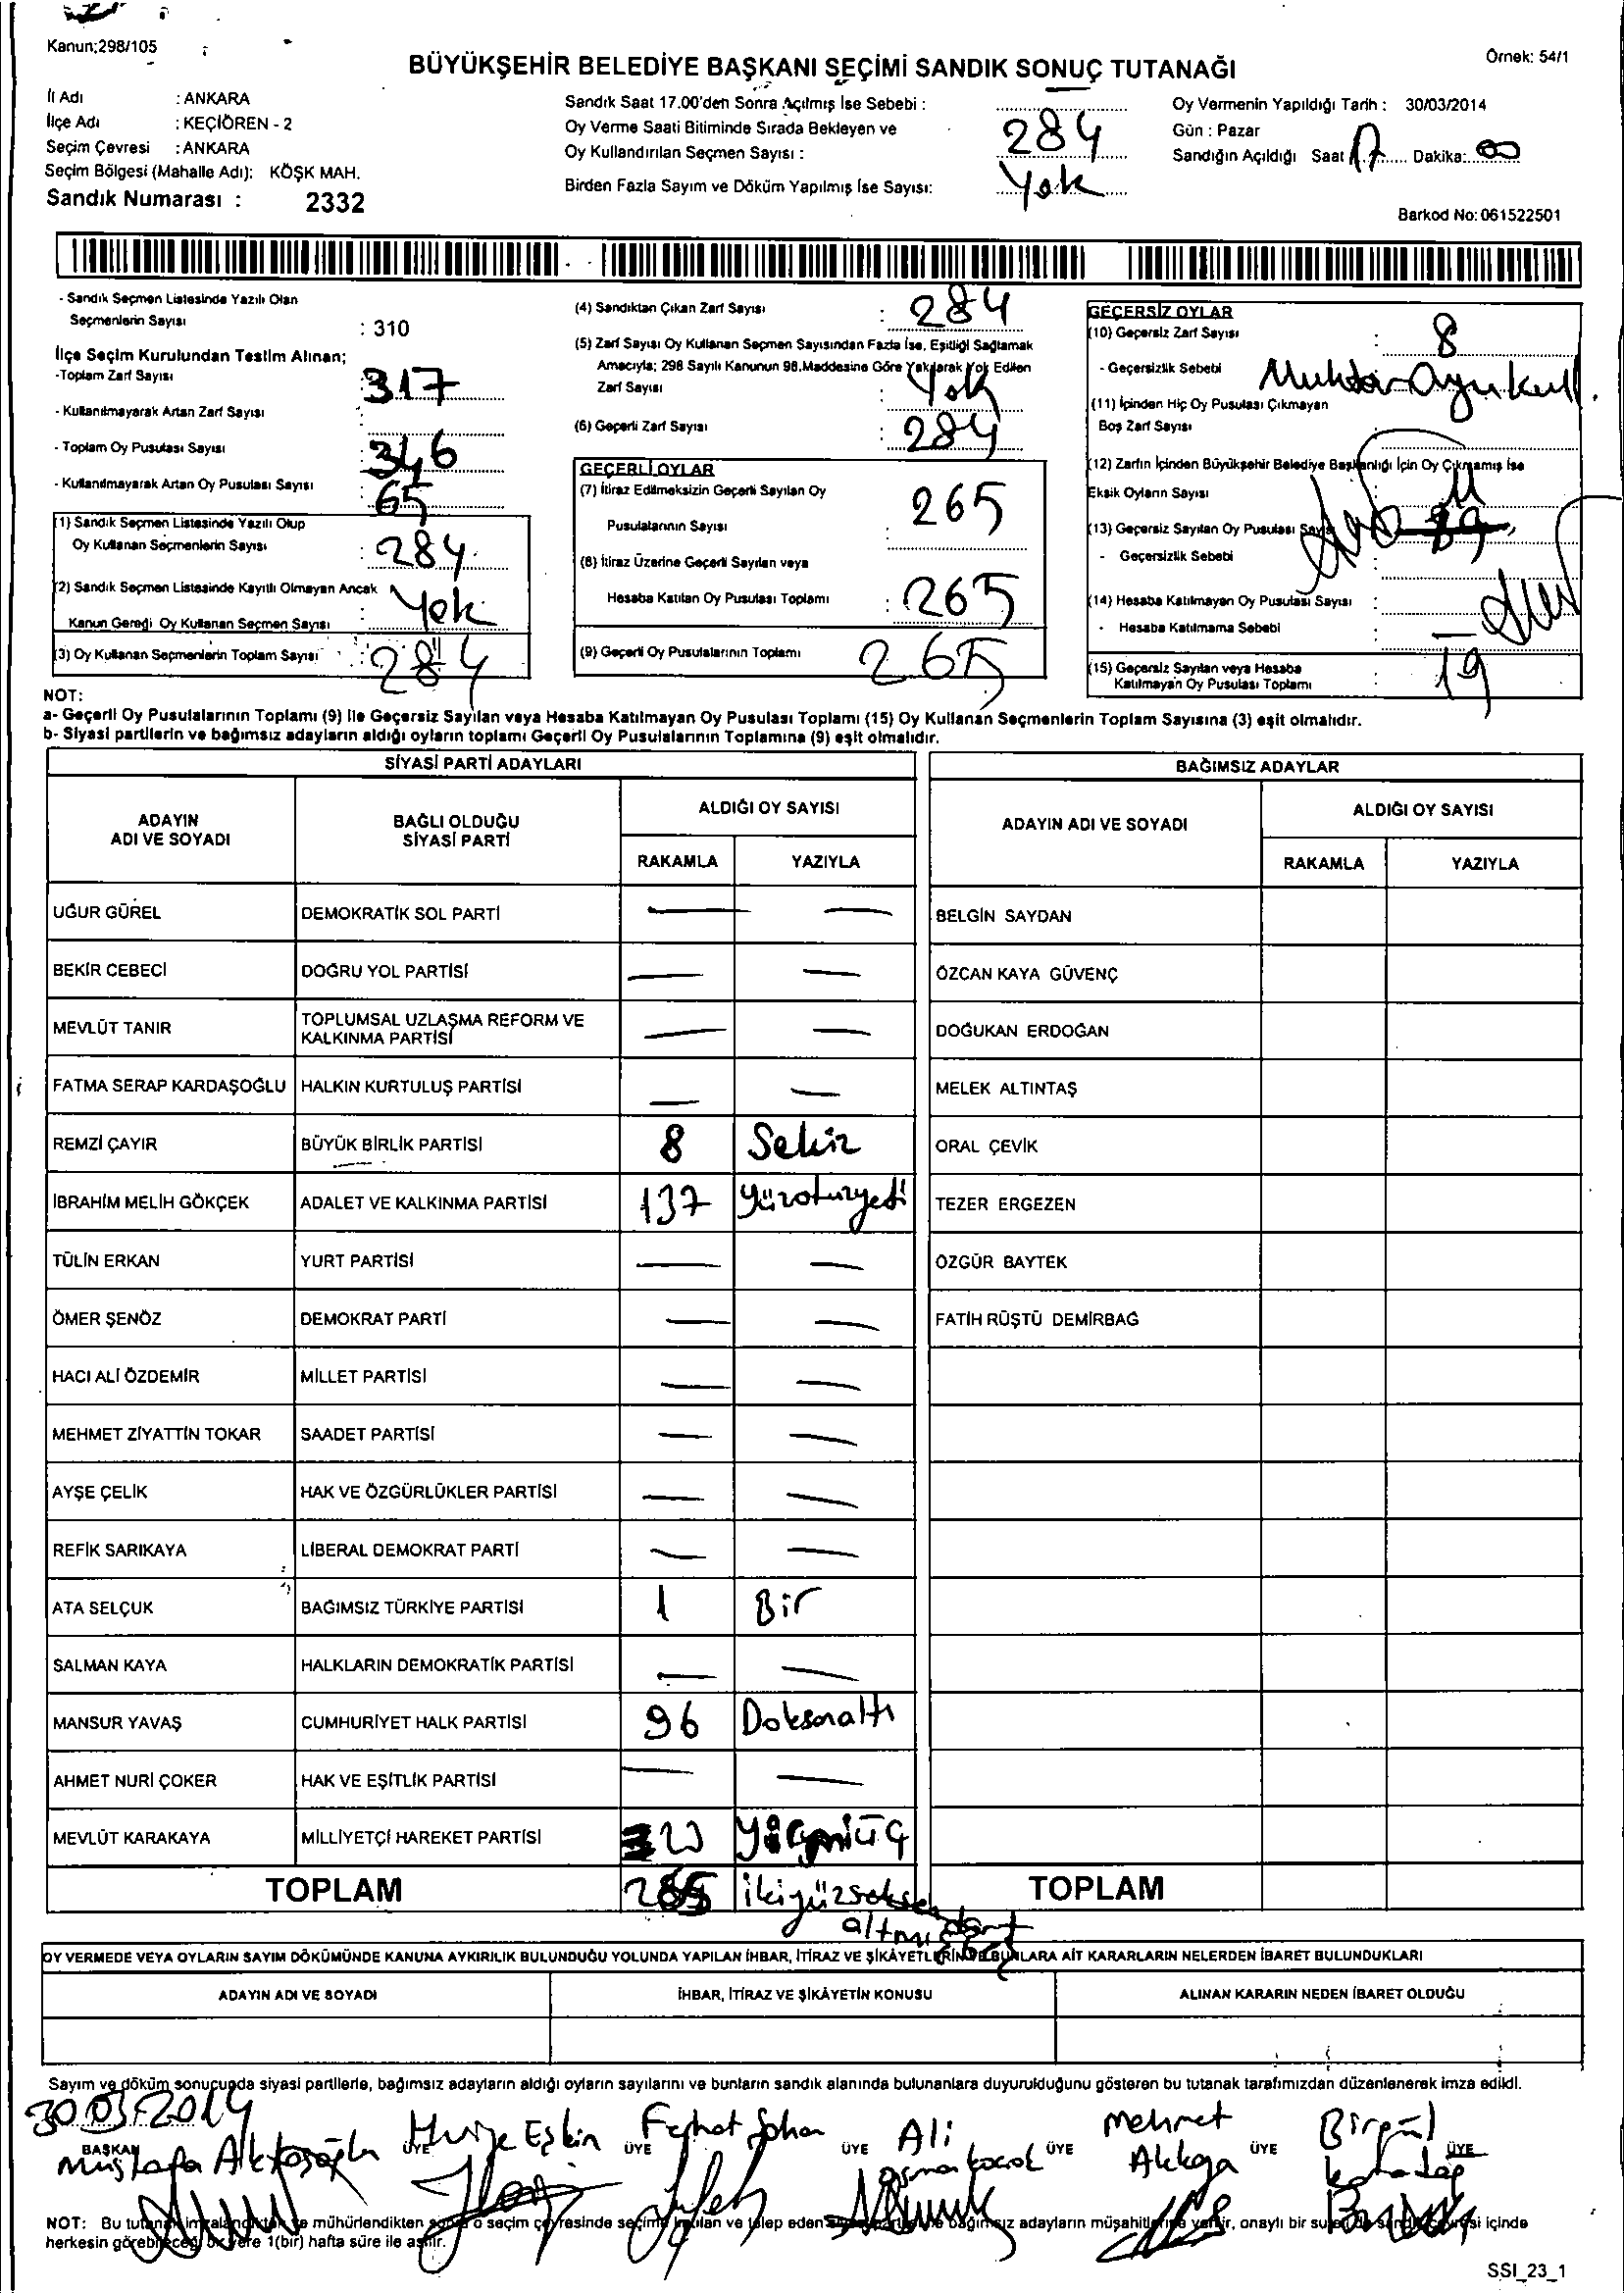 Kanun;298/105
Örnek: 54/1
BÜYÜKŞEHİR BELEDİYE BAŞKANI SEÇİMİ SANDIK SONUÇ TUTANAĞI
İl Adı : ANKARA
İlçe Adı : KEÇİÖREN - 2
Seçim Çevresi : ANKARA
Seçim Bölgesi (Mahalle Adı): KÖŞK MAH.
Sandık Numarası : 2332
Sandık Saat 17.00'den Sonra Açılmış İse Sebebi :
Oy Verme Saati Bitiminde Sırada Bekleyen ve
Oy Kullandırılan Seçmen Sayısı : 284
Birden Fazla Sayım ve Döküm Yapılmış İse Sayısı: Yok
Oy Vermenin Yapıldığı Tarih : 30/03/2014
Gün : Pazar
Sandığın Açıldığı Saat 17 Dakika: 00
Barkod No: 061522501
- Sandık Seçmen Listesinde Yazılı Olan
Seçmenlerin Sayısı : 310
İlçe Seçim Kurulundan Teslim Alınan;
-Toplam Zarf Sayısı 317
- Kullanılmayarak Artan Zarf Sayısı
- Toplam Oy Pusulası Sayısı 346
- Kullanılmayarak Artan Oy Pusulası Sayısı 65
(1) Sandık Seçmen Listesinde Yazılı Olup
Oy Kullanan Seçmenlerin Sayısı : 284
(2) Sandık Seçmen Listesinde Kayıtlı Olmayan Ancak
Kanun Gereği Oy Kullanan Seçmen Sayısı Yok
(3) Oy Kullanan Seçmenlerin Toplam Sayısı : 284
(4) Sandıktan Çıkan Zarf Sayısı : 284
(5) Zarf Sayısı Oy Kullanan Seçmen Sayısından Fazla İse, Eşitliği Sağlamak
Amacıyla; 298 Sayılı Kanunun 98.Maddesine Göre Yakılarak Yok Edilen
Zarf Sayısı : Yok
(6) Geçerli Zarf Sayısı : 284
GEÇERLİ OYLAR
(7) İtiraz Edilmeksizin Geçerli Sayılan Oy
Pusulalarının Sayısı : 265
(8) İtiraz Üzerine Geçerli Sayılan veya
Hesaba Katılan Oy Pusulası Toplamı : 265
(9) Geçerli Oy Pusulalarının Toplamı 265
GEÇERSİZ OYLAR
(10) Geçersiz Zarf Sayısı : 8
- Geçersizlik Sebebi Muhtar Oyu kull.
(11) İçinden Hiç Oy Pusulası Çıkmayan
Boş Zarf Sayısı
(12) Zarfın İçinden Büyükşehir Belediye Başkanlığı İçin Oy Çıkmamış İse
Eksik Oyların Sayısı 11
(13) Geçersiz Sayılan Oy Pusulası Sayısı
- Geçersizlik Sebebi
(14) Hesaba Katılmayan Oy Pusulası Sayısı :
- Hesaba Katılmama Sebebi :
(15) Geçersiz Sayılan veya Hesaba
Katılmayan Oy Pusulası Toplamı : 19
NOT:
a- Geçerli Oy Pusulalarının Toplamı (9) ile Geçersiz Sayılan veya Hesaba Katılmayan Oy Pusulası Toplamı (15) Oy Kullanan Seçmenlerin Toplam Sayısına (3) eşit olmalıdır.
b- Siyasi partilerin ve bağımsız adayların aldığı oyların toplamı Geçerli Oy Pusulalarının Toplamına (9) eşit olmalıdır.
SİYASİ PARTİ ADAYLARI
ADAYIN ADI VE SOYADI
BAĞLI OLDUĞU SİYASİ PARTİ
ALDIĞI OY SAYISI
RAKAMLA YAZIYLA
UĞUR GÜREL DEMOKRATİK SOL PARTİ — —
BEKİR CEBECİ DOĞRU YOL PARTİSİ — —
MEVLÜT TANIR TOPLUMSAL UZLAŞMA REFORM VE KALKINMA PARTİSİ — —
FATMA SERAP KARDAŞOĞLU HALKIN KURTULUŞ PARTİSİ — —
REMZİ ÇAYIR BÜYÜK BİRLİK PARTİSİ 8 Sekiz
İBRAHİM MELİH GÖKÇEK ADALET VE KALKINMA PARTİSİ 137 yüzotuzyedi
TÜLİN ERKAN YURT PARTİSİ — —
ÖMER ŞENÖZ DEMOKRAT PARTİ — —
HACI ALİ ÖZDEMİR MİLLET PARTİSİ — —
MEHMET ZİYATTİN TOKAR SAADET PARTİSİ — —
AYŞE ÇELİK HAK VE ÖZGÜRLÜKLER PARTİSİ — —
REFİK SARIKAYA LİBERAL DEMOKRAT PARTİ — —
ATA SELÇUK BAĞIMSIZ TÜRKİYE PARTİSİ 1 Bir
SALMAN KAYA HALKLARIN DEMOKRATİK PARTİSİ — —
MANSUR YAVAŞ CUMHURİYET HALK PARTİSİ 96 Doksanaltı
AHMET NURİ ÇOKER HAK VE EŞİTLİK PARTİSİ — —
MEVLÜT KARAKAYA MİLLİYETÇİ HAREKET PARTİSİ 23 Yirmiüç
TOPLAM 265 ikiyüz altmışbeş
BAĞIMSIZ ADAYLAR
ADAYIN ADI VE SOYADI
ALDIĞI OY SAYISI
RAKAMLA YAZIYLA
BELGİN SAYDAN
ÖZCAN KAYA GÜVENÇ
DOĞUKAN ERDOĞAN
MELEK ALTINTAŞ
ORAL ÇEVİK
TEZER ERGEZEN
ÖZGÜR BAYTEK
FATİH RÜŞTÜ DEMİRBAĞ
TOPLAM
OY VERMEDE VEYA OYLARIN SAYIM DÖKÜMÜNDE KANUNA AYKIRILIK BULUNDUĞU YOLUNDA YAPILAN İHBAR, İTİRAZ VE ŞİKÂYETLERİN VE BUNLARA AİT KARARLARIN NELERDEN İBARET BULUNDUKLARI
ADAYIN ADI VE SOYADI
İHBAR, İTİRAZ VE ŞİKÂYETİN KONUSU
ALINAN KARARIN NEDEN İBARET OLDUĞU
Sayım ve döküm sonucunda siyasi partilerle, bağımsız adayların aldığı oyların sayılarını ve bunların sandık alanında bulunanlara duyurulduğunu gösteren bu tutanak tarafımızdan düzenlenerek imza edildi.
30.03.2014
BAŞKAN ÜYE ÜYE ÜYE ÜYE ÜYE ÜYE
Mustafa
Ferhat
Ali
Mehmet Akkaya
Birgül
NOT: Bu tutanak imzalandıktan ve mühürlendikten sonra o seçim çevresinde seçime katılan ve talep eden siyasi parti ve bağımsız adayların müşahitlerine verilir, onaylı bir sureti de sandık çevresi içinde
herkesin görebileceği bir yere 1(bir) hafta süre ile asılır.
SSI_23_1